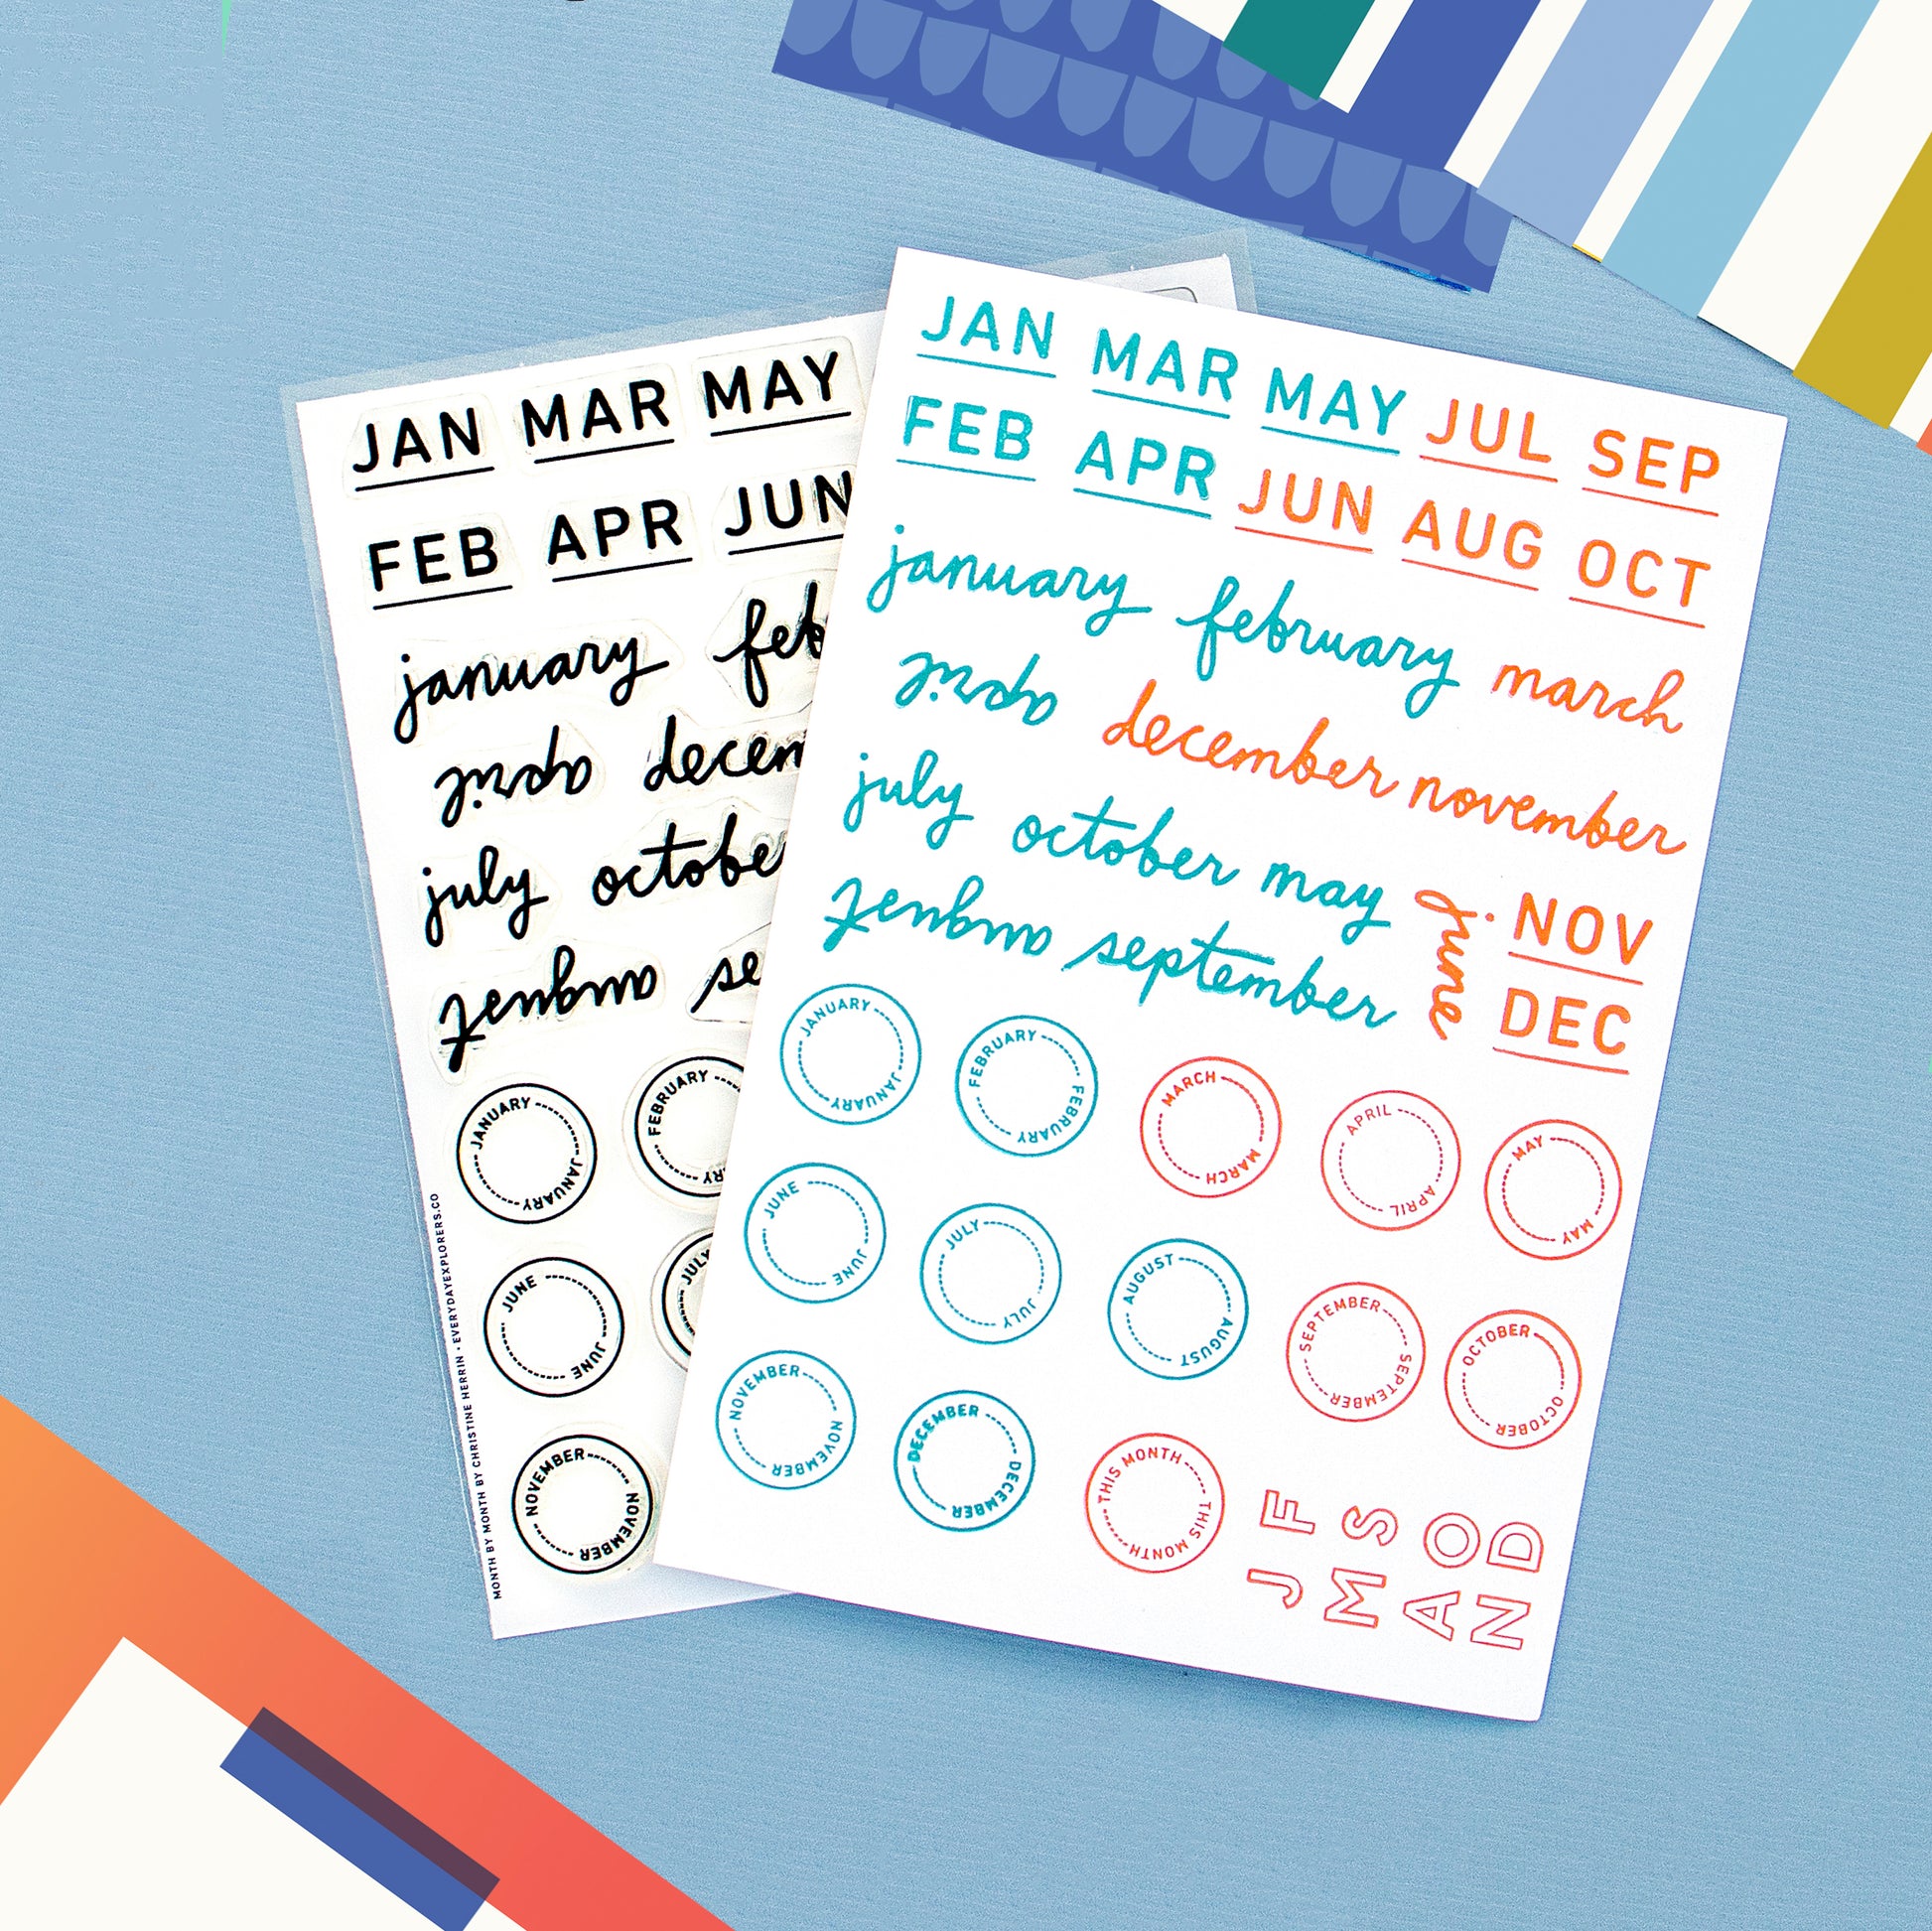 JAN MAR MAY
FEB APR JUN
january feb
april decem
july octobe
august se
JANUARY JANUARY
FEBRUARY
JUNE JUNE
JULY
NOVEMBER NOVEMBER
MONTH BY MONTH BY CHRISTINE HERRIN • EVERYDAYEXPLORERS.CO
JAN MAR MAY JUL SEP
FEB APR JUN AUG OCT
january february march
april december november
july october may june NOV
august september DEC
JANUARY JANUARY
FEBRUARY FEBRUARY
MARCH MARCH
APRIL APRIL
MAY MAY
JUNE JUNE
JULY JULY
AUGUST AUGUST
SEPTEMBER SEPTEMBER
OCTOBER OCTOBER
NOVEMBER NOVEMBER
DECEMBER DECEMBER
THIS MONTH THIS MONTH
J F
M S
A O
N D